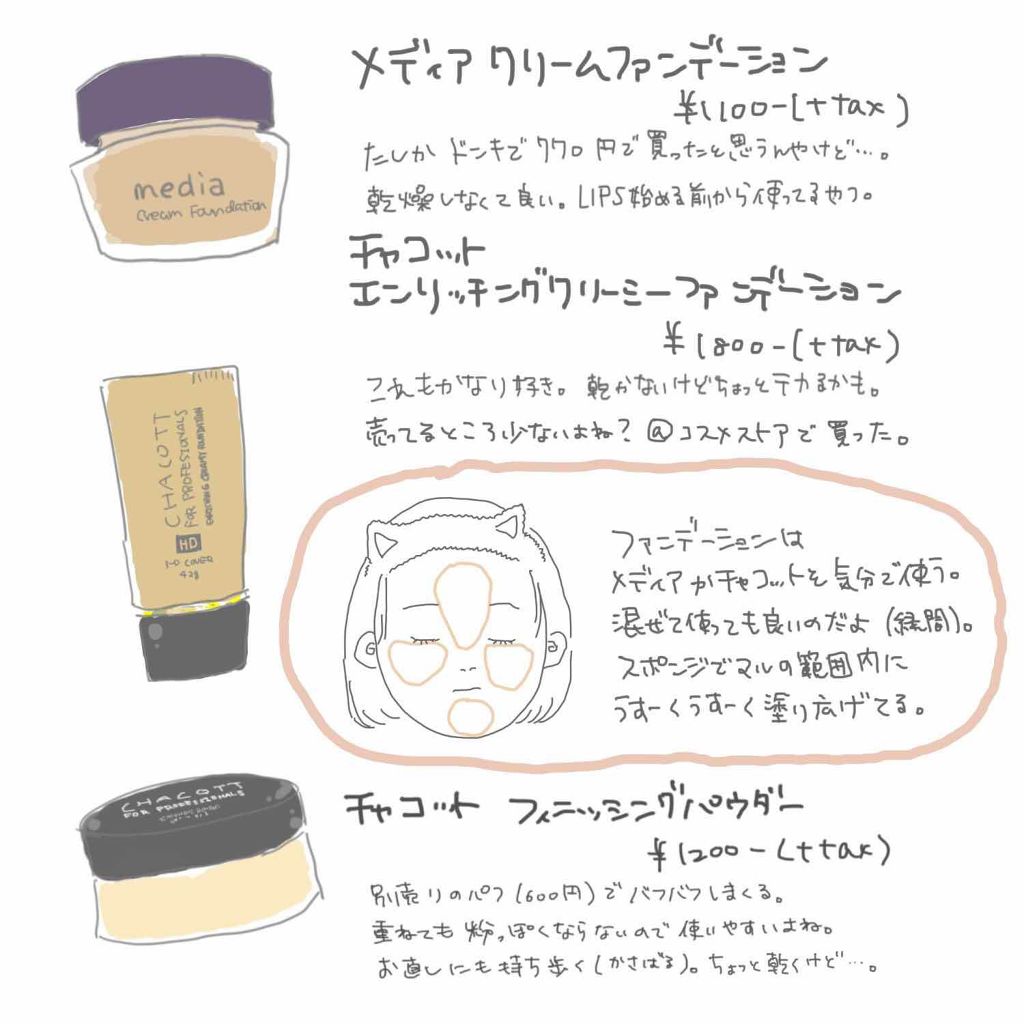 メディア クリームファンデーション
¥1100-(+tax)
たしか ドンキで 770円で 買ったと思うんやけど…。
乾燥しなくて良い。LIPS始める前から使ってるやつ。
media
Cream Foundation
チャコット
エンリッチングクリーミーファンデーション
¥1800-(+tax)
これもかなり好き。乾かないけどちょっとテカるかも。
売ってるところ少ないよね？@コスメストアで買った。
CHACOTT
FOR PROFESIONALS
ENRICHING CREAMY FOUNDATION
HD
COVER
42g
ファンデーションは
メディアかチャコットを気分で使う。
混ぜて使っても良いのだよ(
スポンジでマルの範囲内に
うすーくうすーく塗り広げてる。
CHACOTT
FOR PROFESSIONALS
チャコット フィニッシングパウダー
¥1200-(+tax)
別売りのパフ(600円)でバフバフしまくる。
重ねても粉っぽくならないので使いやすいよね。
お直しにも持ち歩く(かさばる)。ちょっと乾くけど…。